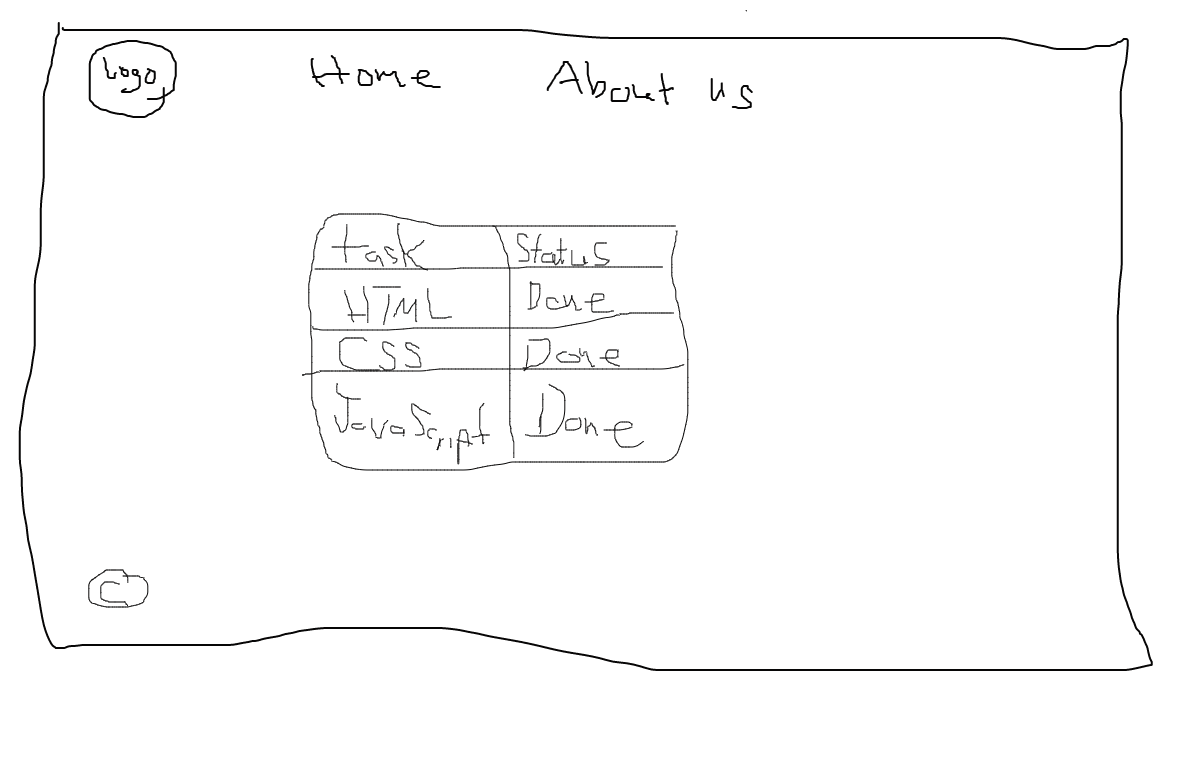 Logo Home About us
task Status
HTML Done
CSS Done
JavaScript Done
©